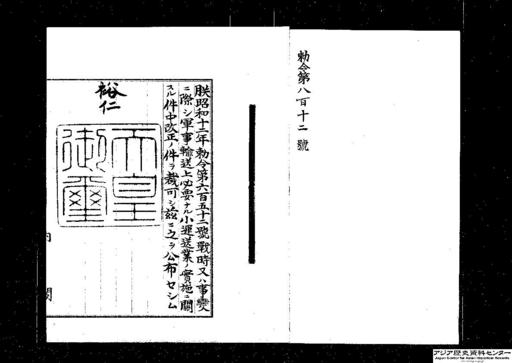 勅令第八百十二號
朕昭和十二年勅令第六百五十二號戰時又ハ事變
ニ際シ軍事輸送上必要ナル小運送業ノ實施ニ關
スル件中改正ノ件ヲ裁可シ茲ニ之ヲ公布セシム
裕仁
天皇御璽
内閣
アジア歴史資料センター
Japan Center for Asian Historical Records